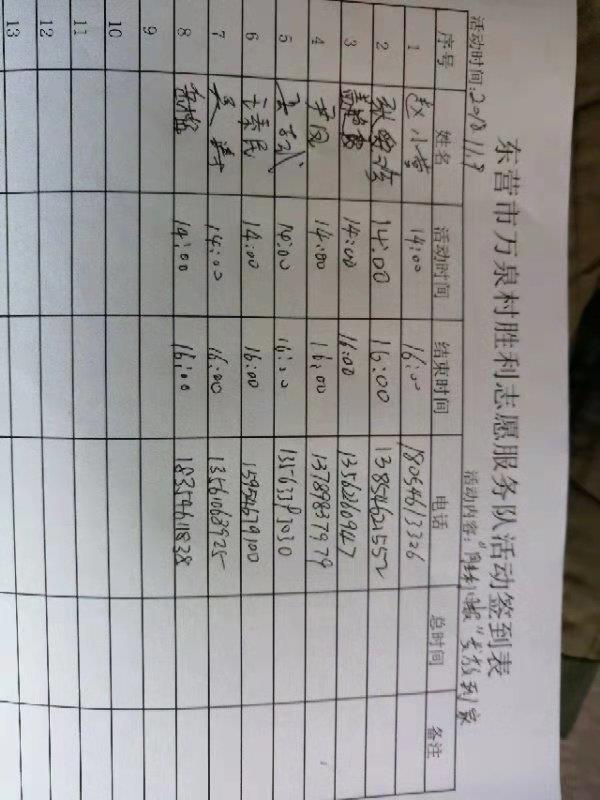 东营市万泉村胜利志愿服务队活动签到表
活动时间:2018 11.9 活动内容:"胜利日报"发放到家
序号 姓名 活动时间 结束时间 电话 总时间 备注
1 赵小芳 14:00 16:00 18054613326
2 14:00 16:00 13854621552
3 14:00 16:00 13562260947
4 14:00 16:00 13789837979
5 14:00 16:00
6 14:00 16:00 15954679100
7 14:00 16:00 13561068925
8 14:00 16:00 18354611838
9
10
11
12
13